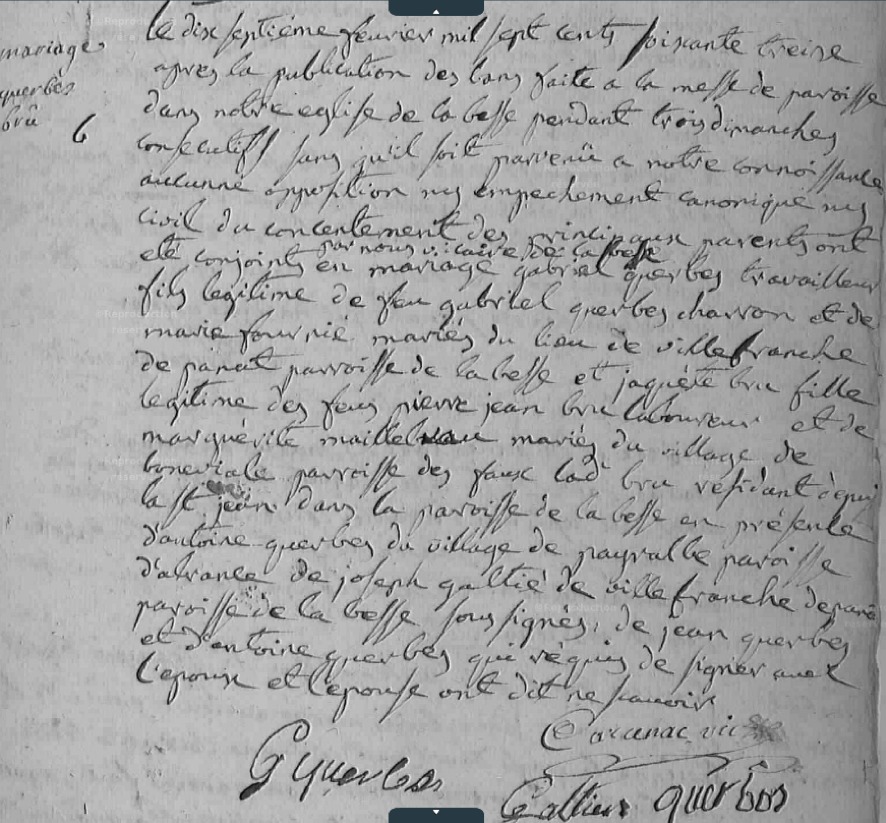 mariage
querbés
brû
6
le dix septiéme fevrier mil sept cents soixante treise
apres la publication des bans faite a la messe de paroisse
dans notre eglise de la besse pendant trois dimanches
consecutifs sans qu'il soit parvenû a notre connoissance
aucunne opposition ny empechement canonique ny
civil du concentement des principaux parents ont
par nous vicaire de la besse
eté conjoints en mariage gabriel querbes travailleur
fils legitime de feu gabriel querbes charron et de
marie fournié mariés du lieu de villefranche
de panat parroisse de la besse et jaquéte bru fille
legitime des feus pierre jean bru laboureur et de
marguérite mariés du village de
boneviale parroisse des faux lad bru résidant depui
la st jean dans la paroisse de la besse en présence
d'antoine querbes du village de payralbe paroisse
d'alrance de joseph galtié de villefranche depanat
paroisse de la besse soussignés, de jean querbes
et d'antoine querbes qui réquis de signer avec
l'epoux et l'epouse ont dit ne sauvoir
Carcenac vic
G querbes
Galtier querbos